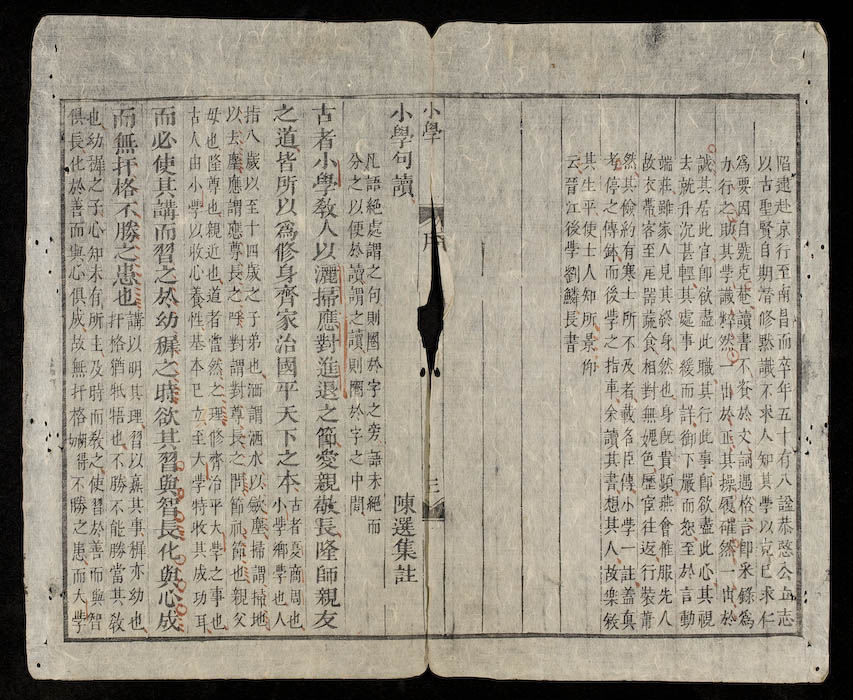 陷逮赴京行至南昌而卒年五十有八謚恭愍公立志
以古聖賢自期潛修默識不求人知其學以克己求仁
為要因自號克菴讀書不資於文詞遇格言即采錄為
力行之助其學識粹然一出於正其操履確然一出於
誠其居此官即欲盡此職其行此事即欲盡此心其視
去就升沉甚輕其處事緩而詳御下嚴而恕至於言動
端莊雖家人見其終身然也身旣貴顯燕會惟服先人
故衣帶客至瓦器蔬食相對無媿色歷宦往返行裝蕭
然其儉約有寒士所不及者載名臣傳小學一註蓋真
考停之傳鉢而後學之指車余讀其書想其人故樂敘
其生平使士人知所景仰
云晉江後學劉鱗長書
小學
序
三
小學句讀
陳選集註
凡語絕處謂之句則圈於字之旁語未絕而
分之以便於讀謂之讀則圈於字之中間
古者小學教人以灑掃應對進退之節愛親敬長隆師親友
之道皆所以為修身齊家治國平天下之本古者夏商周也
小學鄉學也人
指八歲以至十四歲之子弟也洒謂洒水以歛塵掃謂掃地
以去塵應謂應尊長之呼對謂對尊長之問節禮節也親父
母也隆尊也親近也道者當然之理修齊治平大學之事也
古人由小學以收心養性基本已立至大學特收其成功耳
而必使其講而習之於幼穉之時欲其習與智長化與心成
而無扞格不勝之患也講以明其理習以熟其事穉亦幼也
扞格猶牴牾也不勝不能勝當其教
也幼穉之子心知未有所主及時而敎之使習於善而與智
俱長化於善而與心俱成故無扞格難得不勝之患而大學